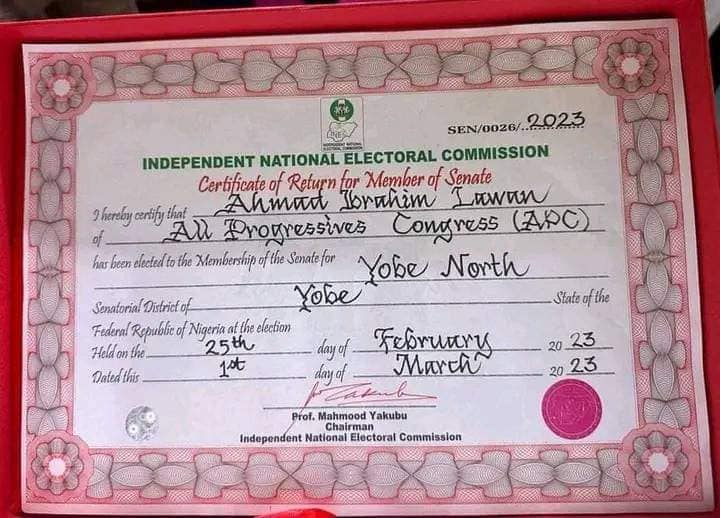 INEC
INDEPENDENT NATIONAL ELECTORAL COMMISSION
SEN/0026/..2023
INDEPENDENT NATIONAL ELECTORAL COMMISSION
Certificate of Return for Member of Senate
I hereby certify that Ahmad Ibrahim Lawan
of All Progressives Congress (APC)
has been elected to the Membership of the Senate for Yobe North
Senatorial District of Yobe State of the
Federal Republic of Nigeria at the election
Held on the 25th day of February 20 23
Dated this 1st day of March 20 23
Prof. Mahmood Yakubu
Chairman
Independent National Electoral Commission